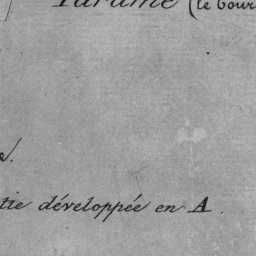 Paramé (le bour
e.
tie développée en A.